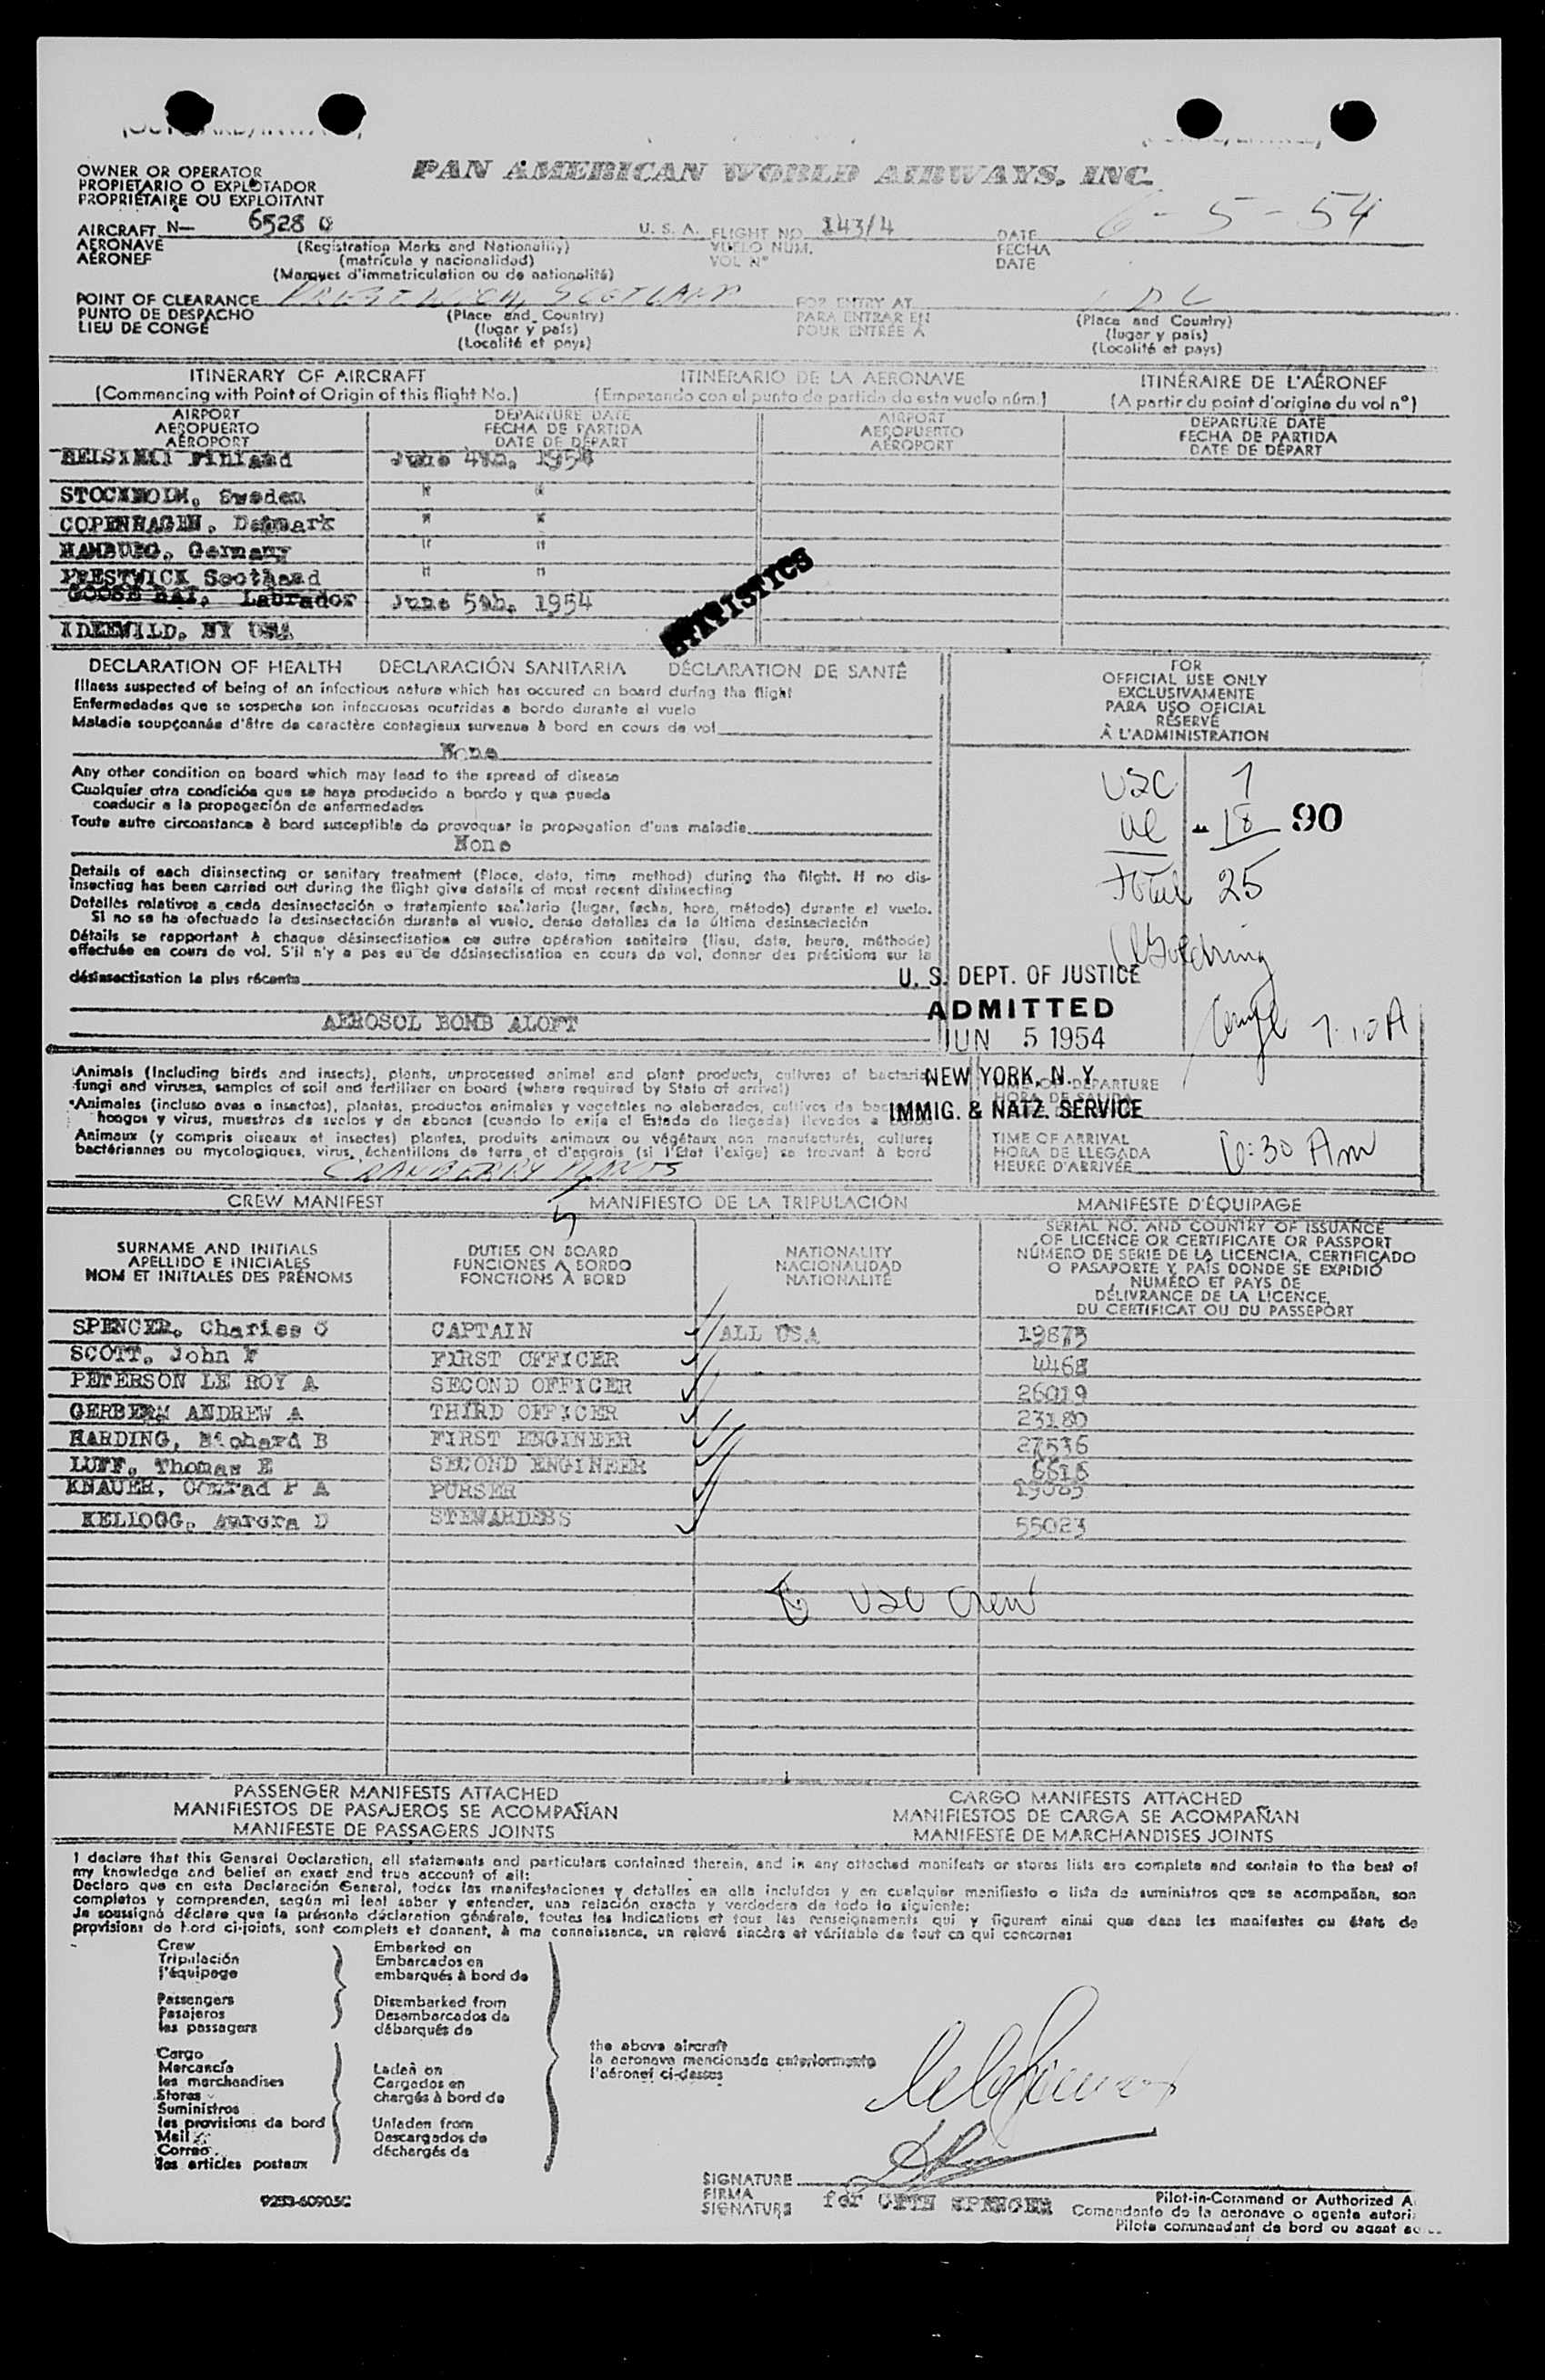 PAN AMERICAN WORLD AIRWAYS, INC.
OWNER OR OPERATOR
PROPIETARIO O EXPLOTADOR
PROPRIÉTAIRE OU EXPLOITANT
AIRCRAFT N— 6528 U. S. A. FLIGHT NO. 143/4 DATE 6-5-54
AERONAVE (Registration Marks and Nationality) VUELO NUM. FECHA
AÉRONEF (matricula y nacionalidad) VOL Nº DATE
(Marques d'immatriculation ou de nationalité)
POINT OF CLEARANCE PRESTWICK, SCOTLAND FOR ENTRY AT IDL
PUNTO DE DESPACHO (Place and Country) PARA ENTRAR EN (Place and Country)
LIEU DE CONGÉ (lugar y país) POUR ENTRÉE À (lugar y país)
(Localité et pays) (Localité et pays)
ITINERARY OF AIRCRAFT ITINERARIO DE LA AERONAVE ITINÉRAIRE DE L'AÉRONEF
(Commencing with Point of Origin of this flight No.) (Empezando con el punto de partida de este vuelo núm.) (A partir du point d'origine du vol nº)
AIRPORT DEPARTURE DATE AIRPORT DEPARTURE DATE
AEROPUERTO FECHA DE PARTIDA AEROPUERTO FECHA DE PARTIDA
AÉROPORT DATE DE DÉPART AÉROPORT DATE DE DÉPART
HELSINKI Finland June 4th, 1954
STOCKHOLM, Sweden " "
COPENHAGEN, Denmark " "
HAMBURG, Germany " "
PRESTWICK Scotland " "
GOOSE BAY, Labrador June 5th, 1954
IDLEWILD, NY USA
STATISTICS
DECLARATION OF HEALTH DECLARACIÓN SANITARIA DÉCLARATION DE SANTÉ
Illness suspected of being of an infectious nature which has occured on board during the flight
Enfermedades que se sospecha son infecciosas ocurridas a bordo durante el vuelo
Maladie soupçonnée d'être de caractère contagieux survenue à bord en cours de vol
None
Any other condition on board which may lead to the spread of disease
Cualquier otra condición que se haya producido a bordo y que pueda
conducir a la propagación de enfermedades
Toute autre circonstance à bord susceptible de provoquer la propagation d'une maladie
None
Details of each disinsecting or sanitary treatment (Place, date, time method) during the flight. If no dis-
insecting has been carried out during the flight give details of most recent disinsecting
Detalles relativos a cada desinsectación o tratamiento sanitario (lugar, fecha, hora, método) durante el vuelo.
Si no se ha efectuado la desinsectación durante el vuelo, dense detalles de la última desinsectación
Détails se rapportant à chaque désinsectisation ou autre opération sanitaire (lieu, date, heure, méthode)
effectuée en cours de vol. S'il n'y a pas eu de désinsectisation en cours de vol, donner des précisions sur la
désinsectisation la plus récente
AEROSOL BOMB ALOFT
FOR
OFFICIAL USE ONLY
EXCLUSIVAMENTE
PARA USO OFICIAL
RÉSERVÉ
À L'ADMINISTRATION
USC 7
18 90
Total 25
7:10 A
U. S. DEPT. OF JUSTICE
ADMITTED
JUN 5 1954
NEW YORK, N. Y.
IMMIG. & NATZ. SERVICE
Animals (Including birds and insects), plants, unprocessed animal and plant products, cultures of bacteria
fungi and viruses, samples of soil and fertilizer on board (where required by State of arrival)
Animales (incluso aves e insectos), plantas, productos animales y vegetales no elaborados, cultivos de
hongos y virus, muestras de suelos y de abonos (cuando lo exija el Estado de llegada) llevados a bordo
Animaux (y compris oiseaux et insectes) plantes, produits animaux ou végétaux non manufacturés, cultures
bactériennes ou mycologiques, virus, échantillons de terre et d'engrais (si l'Etat l'exige) se trouvant à bord
CRANBERRY PLANTS
TIME OF DEPARTURE
HORA DE SALIDA
TIME OF ARRIVAL
HORA DE LLEGADA
HEURE D'ARRIVÉE
6:30 Am
CREW MANIFEST MANIFIESTO DE LA TRIPULACIÓN MANIFESTE D'ÉQUIPAGE
SURNAME AND INITIALS
APELLIDO E INICIALES
NOM ET INITIALES DES PRÉNOMS
DUTIES ON BOARD
FUNCIONES A BORDO
FONCTIONS À BORD
NATIONALITY
NACIONALIDAD
NATIONALITÉ
SERIAL NO. AND COUNTRY OF ISSUANCE
OF LICENCE OR CERTIFICATE OR PASSPORT
NÚMERO DE SERIE DE LA LICENCIA, CERTIFICADO
O PASAPORTE Y PAÍS DONDE SE EXPIDIÓ
NUMÉRO ET PAYS DE
DÉLIVRANCE DE LA LICENCE,
DU CERTIFICAT OU DU PASSEPORT
SPENCER, Charles CAPTAIN ALL USA 19873
SCOTT, John F FIRST OFFICER 4468
PETERSON LE ROY A SECOND OFFICER 26019
GERBER, ANDREW A THIRD OFFICER 23180
HARDING, Richard B FIRST ENGINEER 27536
LUFF, Thomas E SECOND ENGINEER
KNAUER, Conrad P A PURSER
KELLOGG, Aurora D STEWARDESS 55023
USC Crew
PASSENGER MANIFESTS ATTACHED CARGO MANIFESTS ATTACHED
MANIFIESTOS DE PASAJEROS SE ACOMPAÑAN MANIFIESTOS DE CARGA SE ACOMPAÑAN
MANIFESTE DE PASSAGERS JOINTS MANIFESTE DE MARCHANDISES JOINTS
I declare that this General Declaration, all statements and particulars contained therein, and in any attached manifests or stores lists are complete and contain to the best of
my knowledge and belief an exact and true account of all:
Declaro que en esta Declaración General, todas las manifestaciones y detalles en ella incluídos y en cualquier manifiesto o lista de suministros que se acompañan, son
completos y comprenden, según mi leal saber y entender, una relación exacta y verdadera de todo lo siguiente:
Je soussigné déclare que la présente déclaration générale, toutes les indications et tous les renseignements qui y figurent ainsi que dans les manifestes ou états de
provisions de bord ci-joints, sont complets et donnent, à ma connaissance, un relevé sincère et véritable de tout ce qui concerne:
Crew Embarked on
Tripulación Embarcados en
l'équipage embarqués à bord de
Passengers Disembarked from
Pasajeros Desembarcados de
les passagers débarqués de
Cargo
Mercancía Laden on
les marchandises Cargados en
Stores chargés à bord de
Suministros
les provisions de bord Unladen from
Mail Descargados de
Correo déchargés de
les articles postaux
the above aircraft
la aeronave mencionada anteriormente
l'aéronef ci-dessus
SIGNATURE
FIRMA
SIGNATURE
for CPTN SPENCER
Pilot-in-Command or Authorized A
Comandante de la aeronave o agente autori
Pilote commandant de bord ou agent
9253-60905C